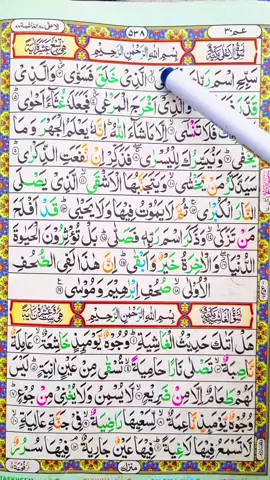 عم ٣٠
٥٣٨
بِسْمِ اللّٰهِ الرَّحْمٰنِ الرَّحِيْمِ
سَبِّحِ اسْمَ رَبِّكَ الَّذِيْ خَلَقَ فَسَوّٰى وَالَّذِيْ
قَدَّرَ فَهَدٰى وَالَّذِيْٓ اَخْرَجَ الْمَرْعٰى فَجَعَلَهٗ غُثَآءً اَحْوٰى
سَنُقْرِئُكَ فَلَا تَنْسٰٓى اِلَّا مَا شَآءَ اللّٰهُ اِنَّهٗ يَعْلَمُ الْجَهْرَ وَمَا
يَخْفٰى وَنُيَسِّرُكَ لِلْيُسْرٰى فَذَكِّرْ اِنْ نَّفَعَتِ الذِّكْرٰى
سَيَذَّكَّرُ مَنْ يَّخْشٰى وَيَتَجَنَّبُهَا الْاَشْقَى الَّذِيْ يَصْلَى
النَّارَ الْكُبْرٰى ثُمَّ لَا يَمُوْتُ فِيْهَا وَلَا يَحْيٰى قَدْ اَفْلَحَ
مَنْ تَزَكّٰى وَذَكَرَ اسْمَ رَبِّهٖ فَصَلّٰى بَلْ تُؤْثِرُوْنَ الْحَيٰوةَ
الدُّنْيَا وَالْاٰخِرَةُ خَيْرٌ وَّاَبْقٰى اِنَّ هٰذَا لَفِى الصُّحُفِ
الْاُوْلٰى صُحُفِ اِبْرٰهِيْمَ وَمُوْسٰى
بِسْمِ اللّٰهِ الرَّحْمٰنِ الرَّحِيْمِ
هَلْ اَتٰىكَ حَدِيْثُ الْغَاشِيَةِ وُجُوْهٌ يَّوْمَئِذٍ خَاشِعَةٌ عَامِلَةٌ
نَّاصِبَةٌ تَصْلٰى نَارًا حَامِيَةً تُسْقٰى مِنْ عَيْنٍ اٰنِيَةٍ لَيْسَ
لَهُمْ طَعَامٌ اِلَّا مِنْ ضَرِيْعٍ لَّا يُسْمِنُ وَلَا يُغْنِيْ مِنْ جُوْعٍ
وُجُوْهٌ يَّوْمَئِذٍ نَّاعِمَةٌ لِّسَعْيِهَا رَاضِيَةٌ فِيْ جَنَّةٍ عَالِيَةٍ
لَّا تَسْمَعُ فِيْهَا لَاغِيَةً فِيْهَا عَيْنٌ جَارِيَةٌ فِيْهَا سُرُرٌ
منزل